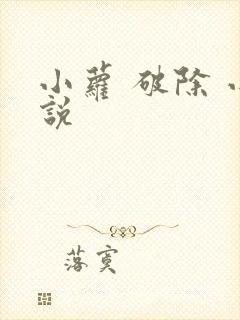 小蘿 破除 小
說
落寞